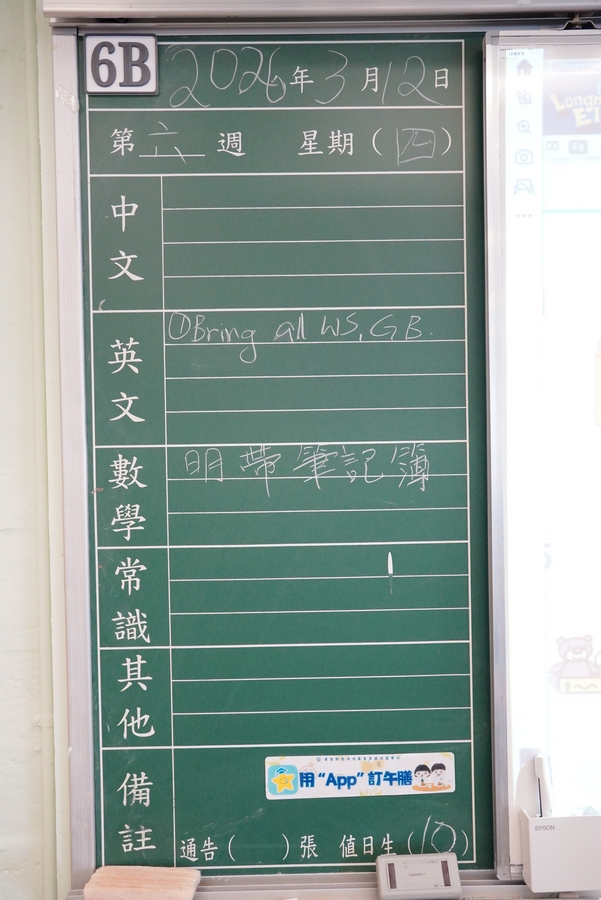 6B
2026年3月12日
第六週 星期(四)
中文
英文
①Bring all WS, GB.
數學
明帶筆記簿
常識
其他
備註
用“App”訂午膳
通告( )張 值日生(10)
EPSON